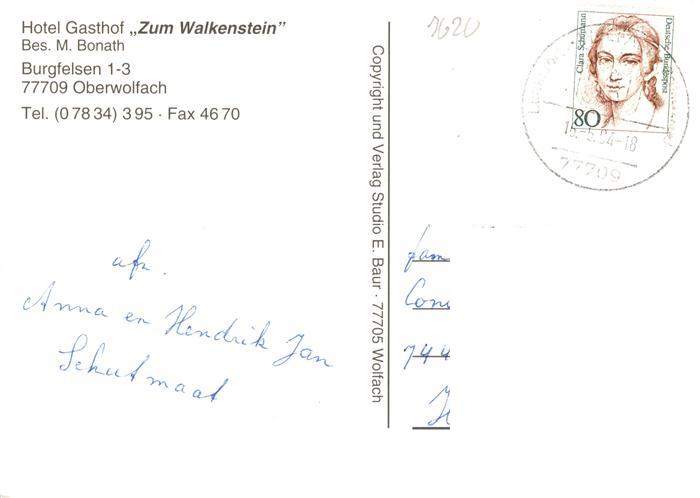 Hotel Gasthof „Zum Walkenstein”
Bes. M. Bonath
Burgfelsen 1-3
77709 Oberwolfach
Tel. (0 78 34) 3 95 · Fax 46 70
Copyright und Verlag Studio E. Baur · 77705 Wolfach
1620
Clara Schumann
Deutsche Bundespost
80
-18
77709
afz.
Anna en Hendrik Jan
Schutmaat
fam
744